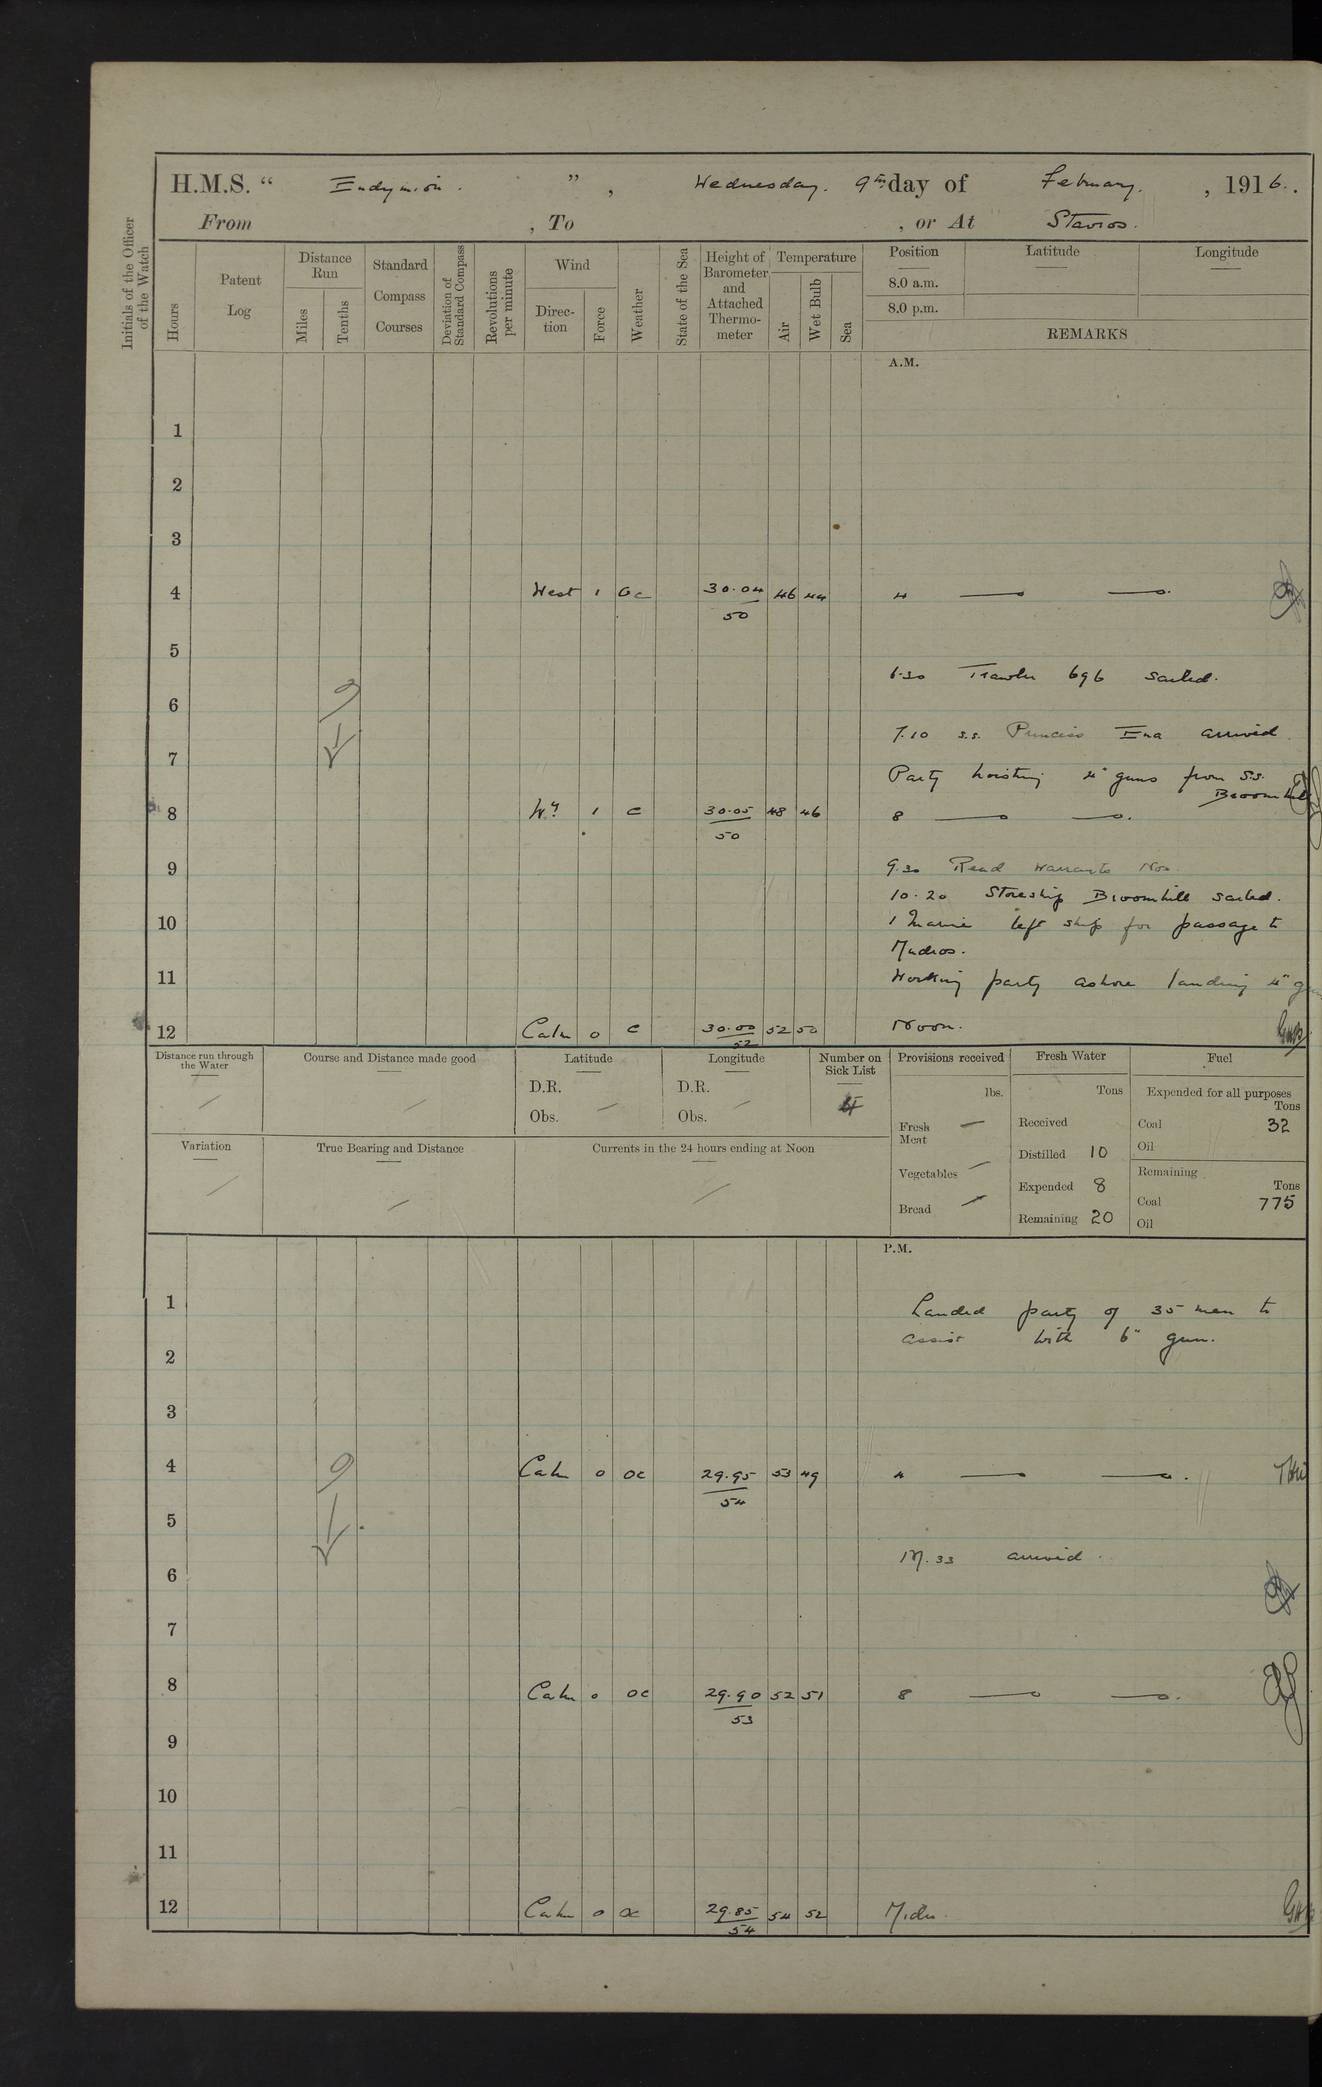 H.M.S. “ Endymion. ” , Wednesday. 9th day of February. , 1916.
From , To , or At Stavros.
Initials of the Officer of the Watch
Hours
Patent Log
Distance Run
Miles
Tenths
Standard Compass Courses
Deviation of Standard Compass
Revolutions per minute
Wind
Direction
Force
Weather
State of the Sea
Height of Barometer and Attached Thermometer
Temperature
Air
Wet Bulb
Sea
Position Latitude Longitude
8.0 a.m.
8.0 p.m.
REMARKS
A.M.
1
2
3
4 West 1 oc 30.04 46 44 4
50
5
6.30 Trawler 696 sailed.
6
7.10 s.s. Princess Ena arrived.
7
Party hoisting 4" guns from S.S. Broomhill
8 Wy. 1 c 30.05 48 46 8
50
9 9.30 Read Warrants Nos.
10.20 Storeship Broomhill sailed.
10 1 Marine left ship for passage to
Mudros.
11 Working party ashore landing 4"
12 Calm 0 c 30.00 52 50 Noon.
52
Distance run through the Water
Course and Distance made good
Latitude
D.R.
Obs.
Longitude
D.R.
Obs.
Number on Sick List
Provisions received
lbs.
Fresh Meat
Vegetables
Bread
Fresh Water
Tons
Received
Distilled 10
Expended 8
Remaining 20
Fuel
Expended for all purposes
Tons
Coal 32
Oil
Remaining
Tons
Coal 775
Oil
Variation
True Bearing and Distance
Currents in the 24 hours ending at Noon
P.M.
1 Landed party of 35 men to
assist with 6" gun.
2
3
4 Calm 0 oc 29.95 53 49 4
54
5
M.33 arrived.
6
7
8 Calm 0 oc 29.90 52 51 8
53
9
10
11
12 Calm 0 oc 29.85 54 52 Midn.
54